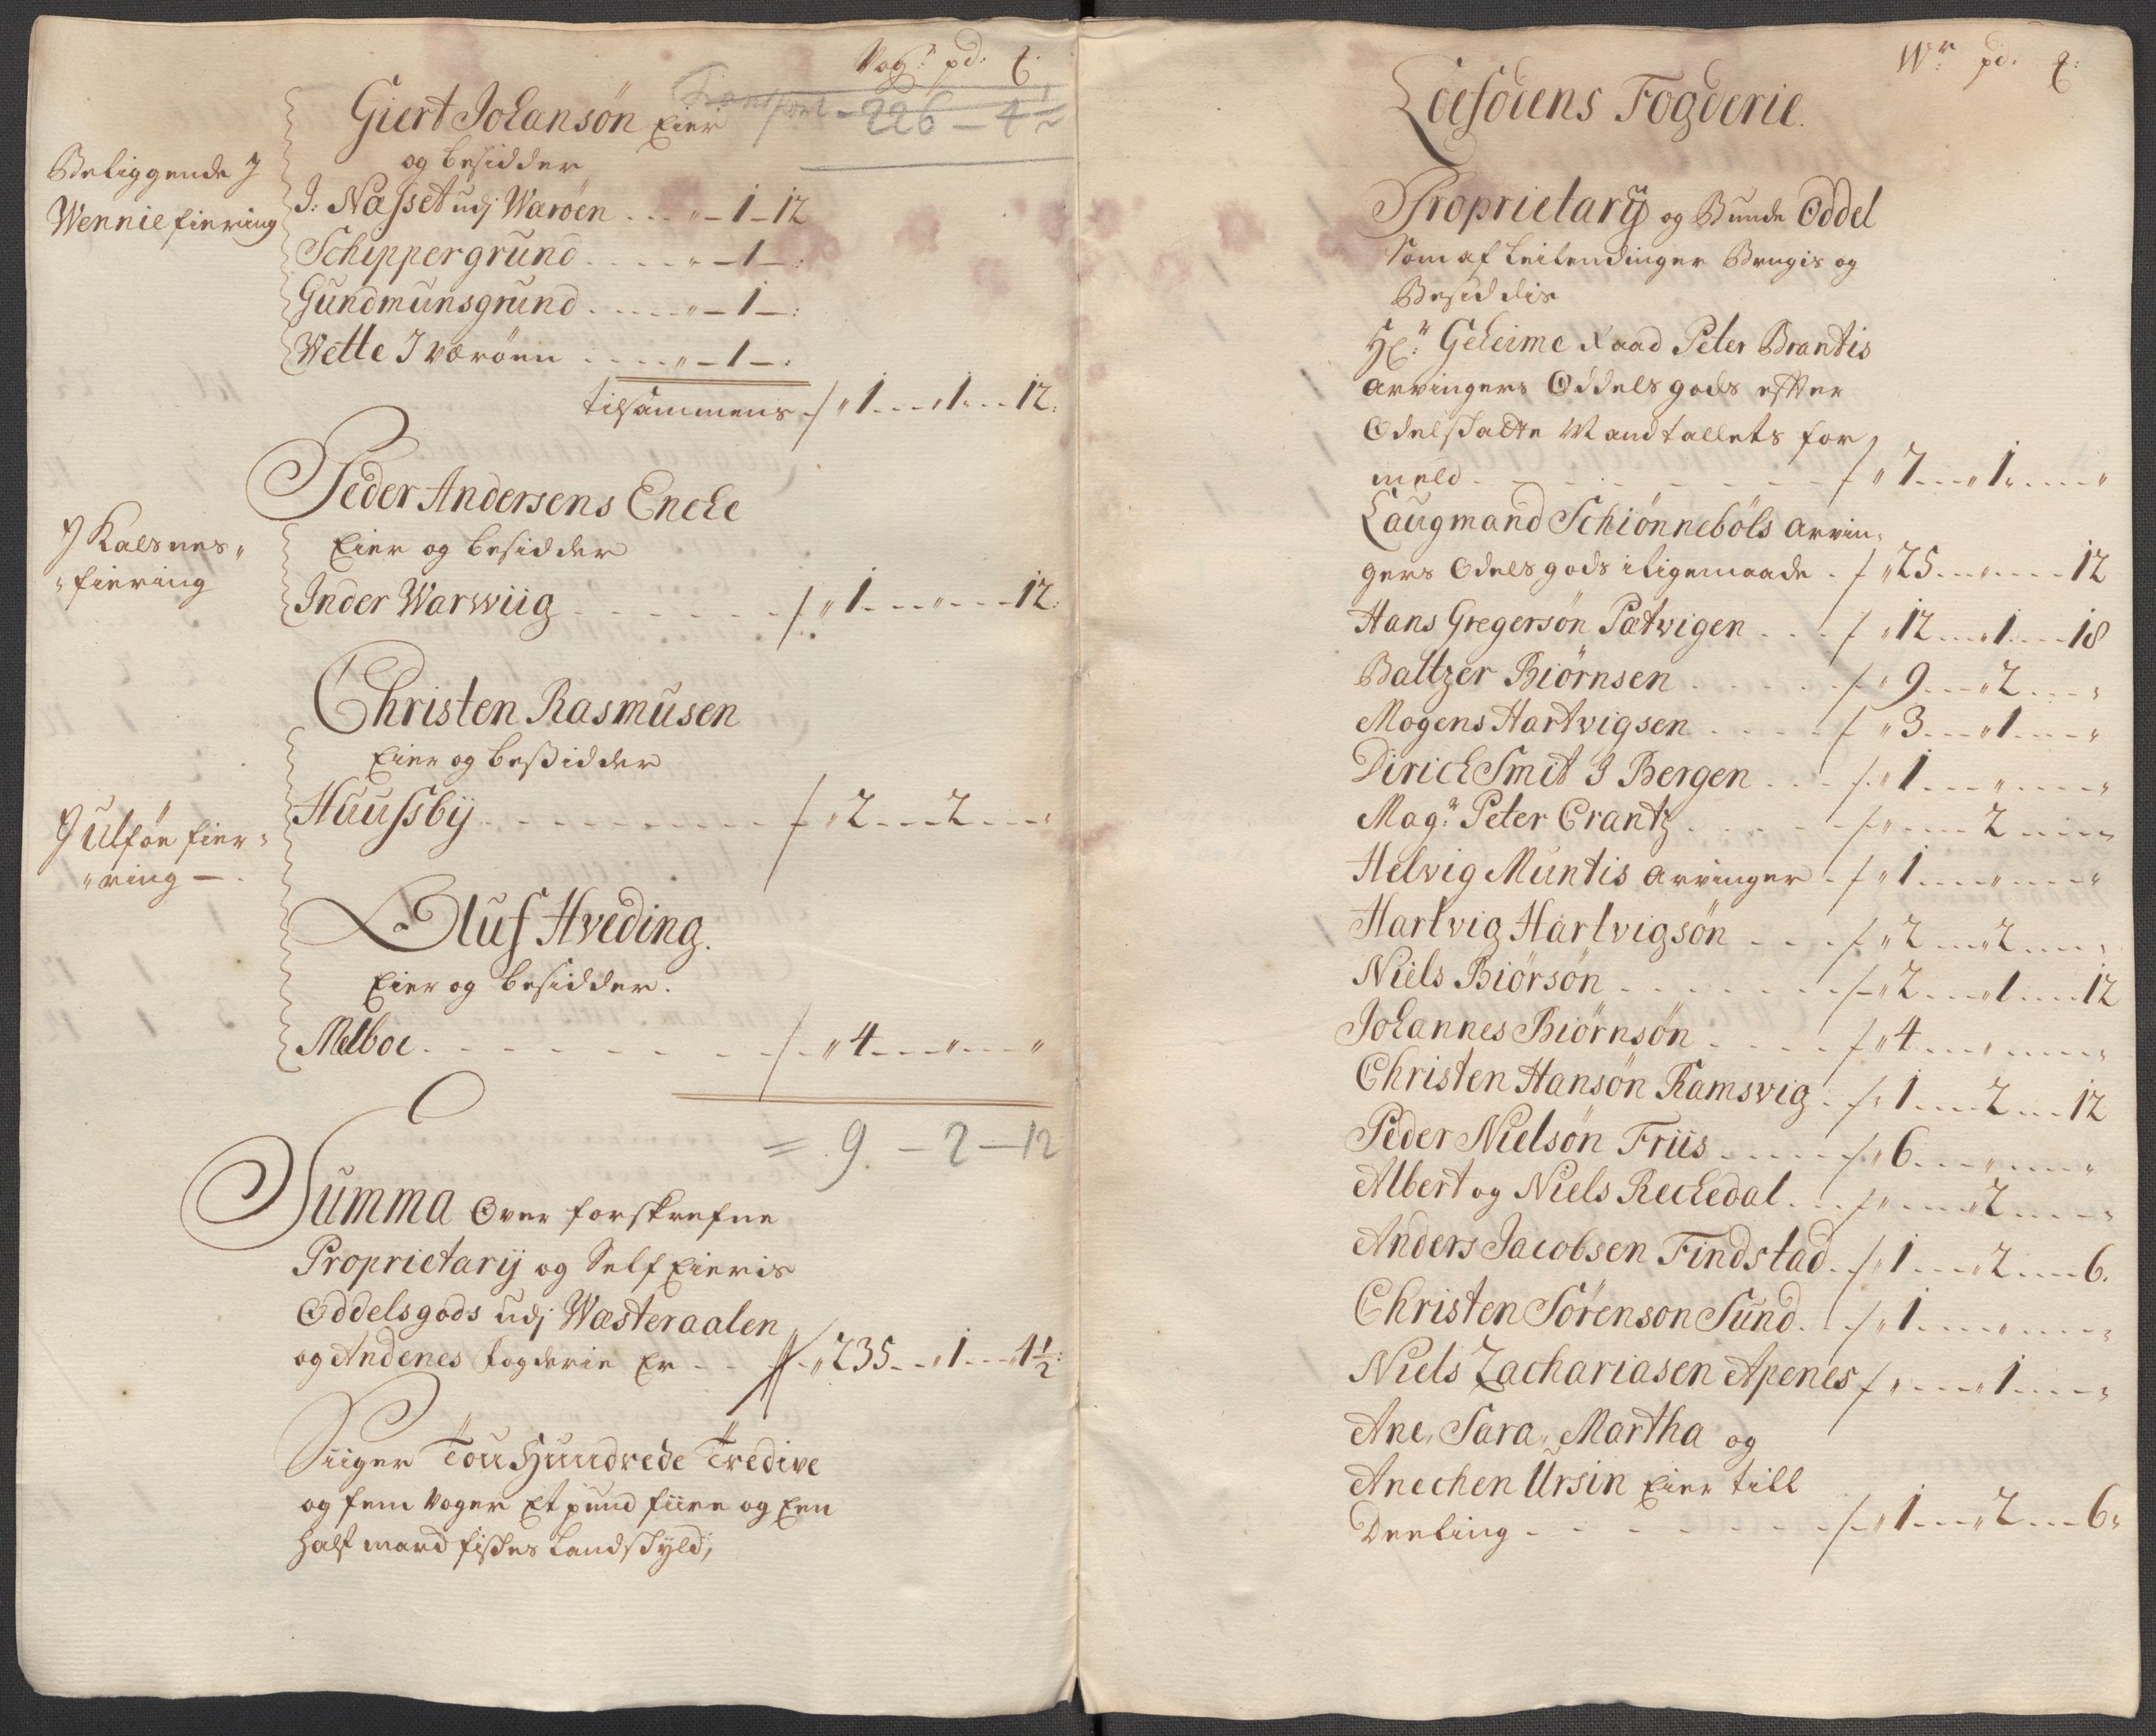 Vog:r pd: ℔:
Transport - 226 - 4 1/2
Giert Johansøn Eier
og besidder
Beliggende J
Wennie fiering
J: Nasset udj Warøen . . . „ - 1 - 12
Schippergrund . . . . „ - 1 - :
Gundmunsgrund . . . . „ - 1 - :
Wette J værøen . . . . „ - 1 - :
tilsammens -/ „ 1 - - „ 1 - - 12:
Peder Andersens Encke
Eier og besidder
J Kalsnes„
„fiering
Inder Warwiig - - - - - /. „ 1 - - „ - - 12:
Christen Rasmusen
Eier og beßidder
J ulføe fier„
„ring -
Huussbÿ - - - - - / „ 2 - - 2 - - „
Oluf Hveding.
Eier og besidder.
Melboe. - - - - - / „ 4 - - „ - - „
= 9 - 2 - 12
Summa Over forskrefne
Proprietarij og Self Eieris
Oddelsgods udj Wæsteraalen
og Andenes fogderie Er - - „ 235 - - „ 1 - - „ 4 1/2:
Siiger Tou Hundrede Tredive
og fem Voger Et pund fiire og Een
half mard fiskes Landskyld,
W:r pd: ℔:
Loefodens Fogderie.
Proprietarÿ og Bunde Oddel
som af leilendinger Brugis og
Besiddis
H:r Geheime Raad Peter Brantis
arvingers Oddels gods efter
Odelskatte Mandtallets for
meld - - - - - / „ 7 - - „ 1 - - „
Laugmand Schiønnebøls arvin„
gers Odels gods iligemaade - / „ 25 - - „ - - 12
Hans Gregersøn Pætvigen - - / „ 12 - - „ 1 - - 18
Baltzer Biørnsen - - - - / „ 9 - - „ 2 - - „
Mogens Hartvigsen - - - / „ 3 - - „ 1 - - „
Dirich Smit J Bergen - - / „ 1 - - „ - - „
Mag:r Peter Crantz - - - / „ - - 2 - - „
Helvig Muntis arvinger - / „ 1 - - „ - - „
Hartvig Hartvigsøn - - - / „ 2 - - „ 2 - - „
Niels Biørsøn - - - - / „ 2 - - „ 1 - - 12
Johannes Biørnsøn - - - / „ 4 - - „ - - „
Christen Hansøn Ramsvig - / „ 1 - - 2 - - 12
Peder Nielsøn Friis - - - / „ 6 - - „ - - „
Albert og Niels Reckedal - - / „ - - „ 2 - - „
Anders Jacobsen Findstad - / „ 1 - - „ 2 - - 6.
Christen Sørenson Sund - - / „ 1 - - „ - - „
Niels Zachariasen Apenes / „ - - „ 1 - - „
Ane, Sara, Martha og
Anechen Ursin Eier till
Deeling - - - - - / „ 1 - - „ 2 - - 6„